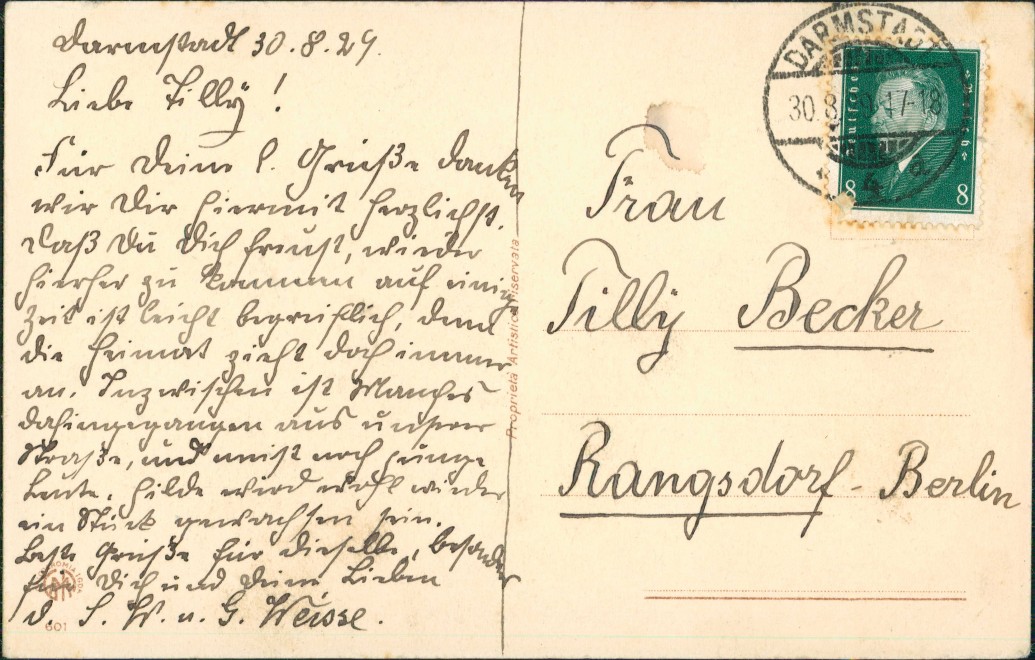 Darmstadt 30.8.29.
Liebe Tilly!
Für Deine l. Grüße danken
wir Dir hiermit herzlichst.
Daß Du Dich freust, wieder
hierher zu kommen auf einige
Zeit ist leicht begreiflich, denn
die Heimat zieht doch immer
an. Inzwischen ist Manches
dahingegangen aus unserer
Straße, und meist noch junge
Leute. Hilde wird wohl wieder
ein Stück gewachsen sein.
Beste Grüße für dieselbe, besonders
für Dich und Deine Lieben
d. S. W. u. G. Weisse.
601
Proprietà Artistica Riservata
DARMSTADT
30.8. 9.17-18
8
8
Frau
Tilly Becker
Rangsdorf - Berlin